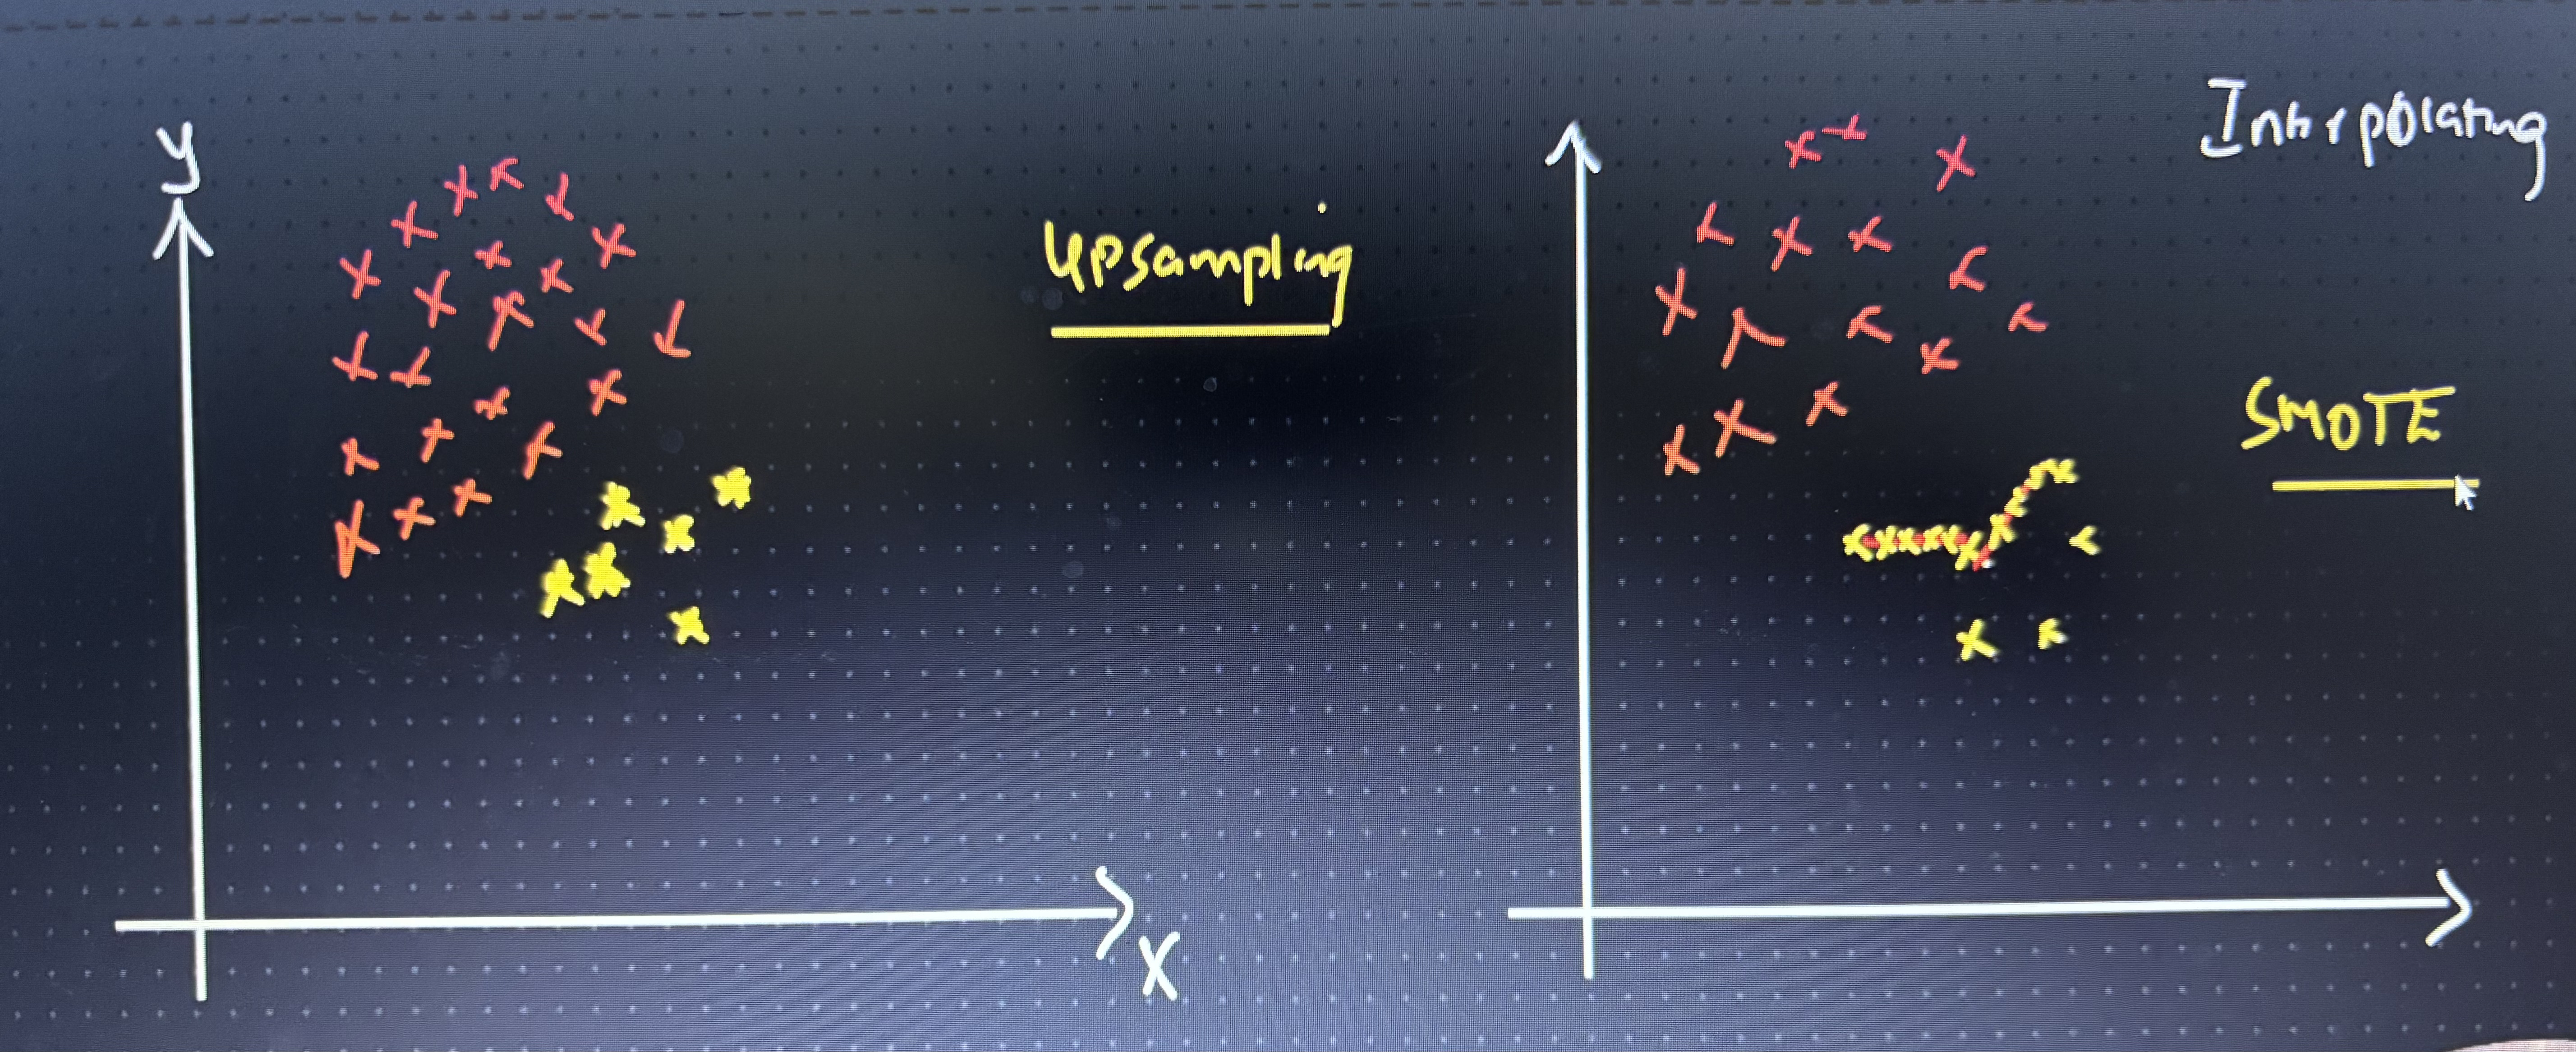 y
Upsampling
x
Interpolating
SMOTE